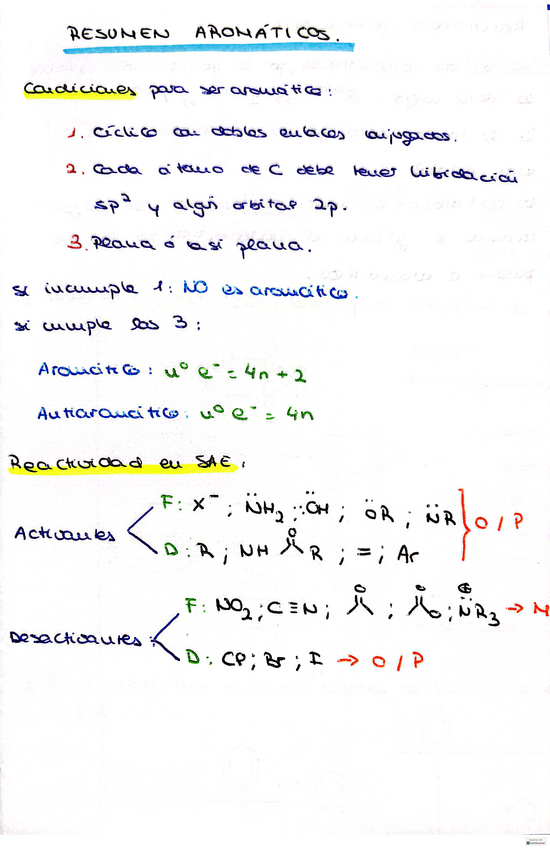 RESUMEN AROMÁTICOS.
Condiciones para ser aromático:
1. Cíclico con dobles enlaces conjugados.
2. Cada átomo de C debe tener hibridación
sp² y algún orbital 2p.
3. Plana o casi plana.
si incumple 1: NO es aromático.
si cumple las 3:
Aromático: nº e⁻ = 4n + 2
Antiaromático: nº e⁻ = 4n
Reactividad en SAE:
Activantes
F: X⁻ ; N̈H₂ ; ÖH ; ÖR ; N̈R
O / P
D: R ; NH O R ; = ; Ar
Desactivantes:
F: NO₂ ; C≡N ; O ; O O ; N̈R₃ ⊕ → M
D: Cl ; Br ; I → O / P